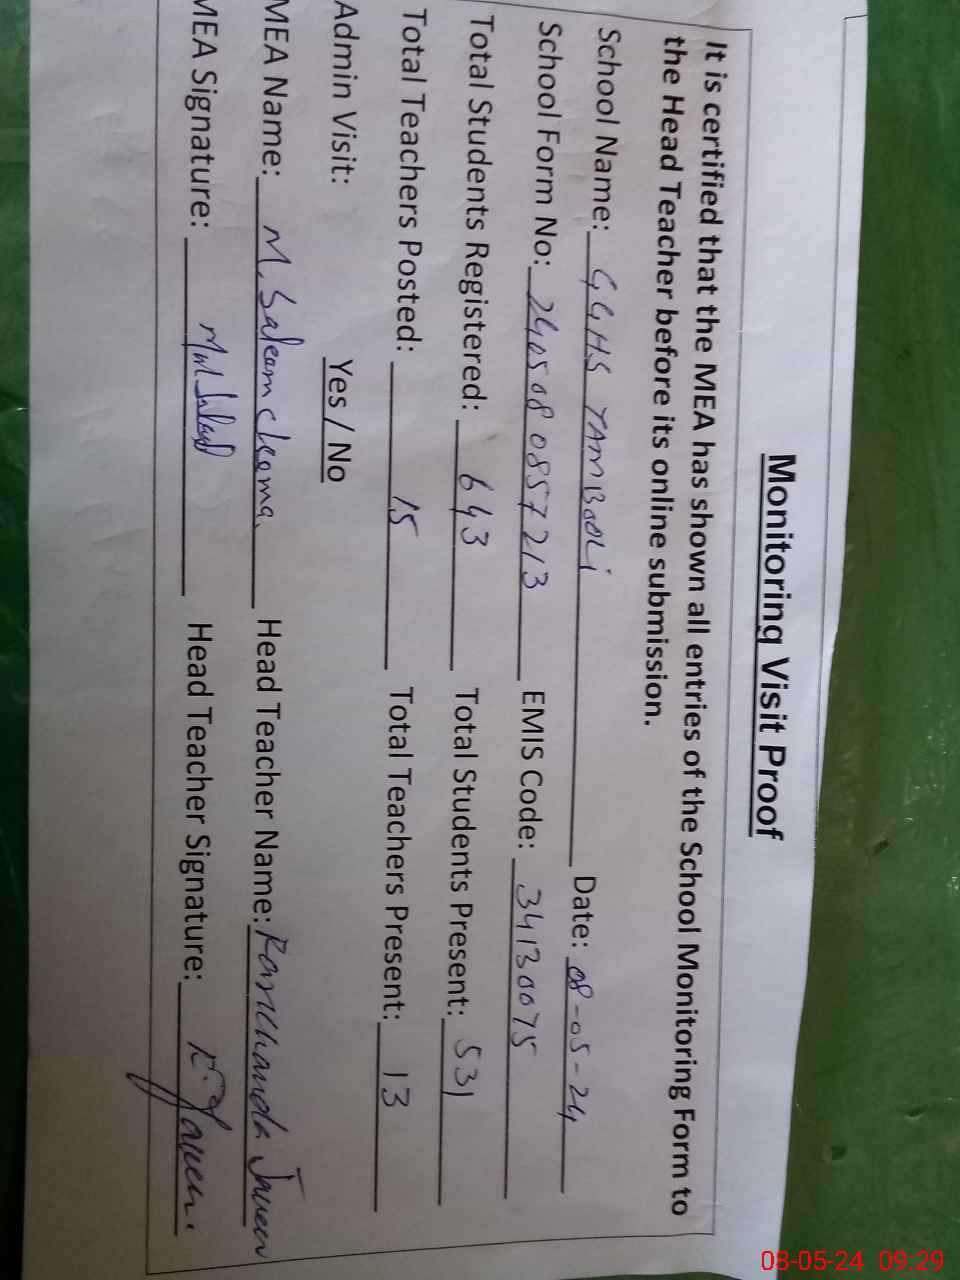 Monitoring Visit Proof
It is certified that the MEA has shown all entries of the School Monitoring Form to
the Head Teacher before its online submission.
School Name: GGHS TAMBOOLI Date: 08-05-24
School Form No: 2405080857213 EMIS Code: 34130075
Total Students Registered: 643 Total Students Present: 531
Total Teachers Posted: 15 Total Teachers Present: 13
Admin Visit: Yes / No
MEA Name: M. Saleem Head Teacher Name:
MEA Signature: Head Teacher Signature:
08-05-24 09:29